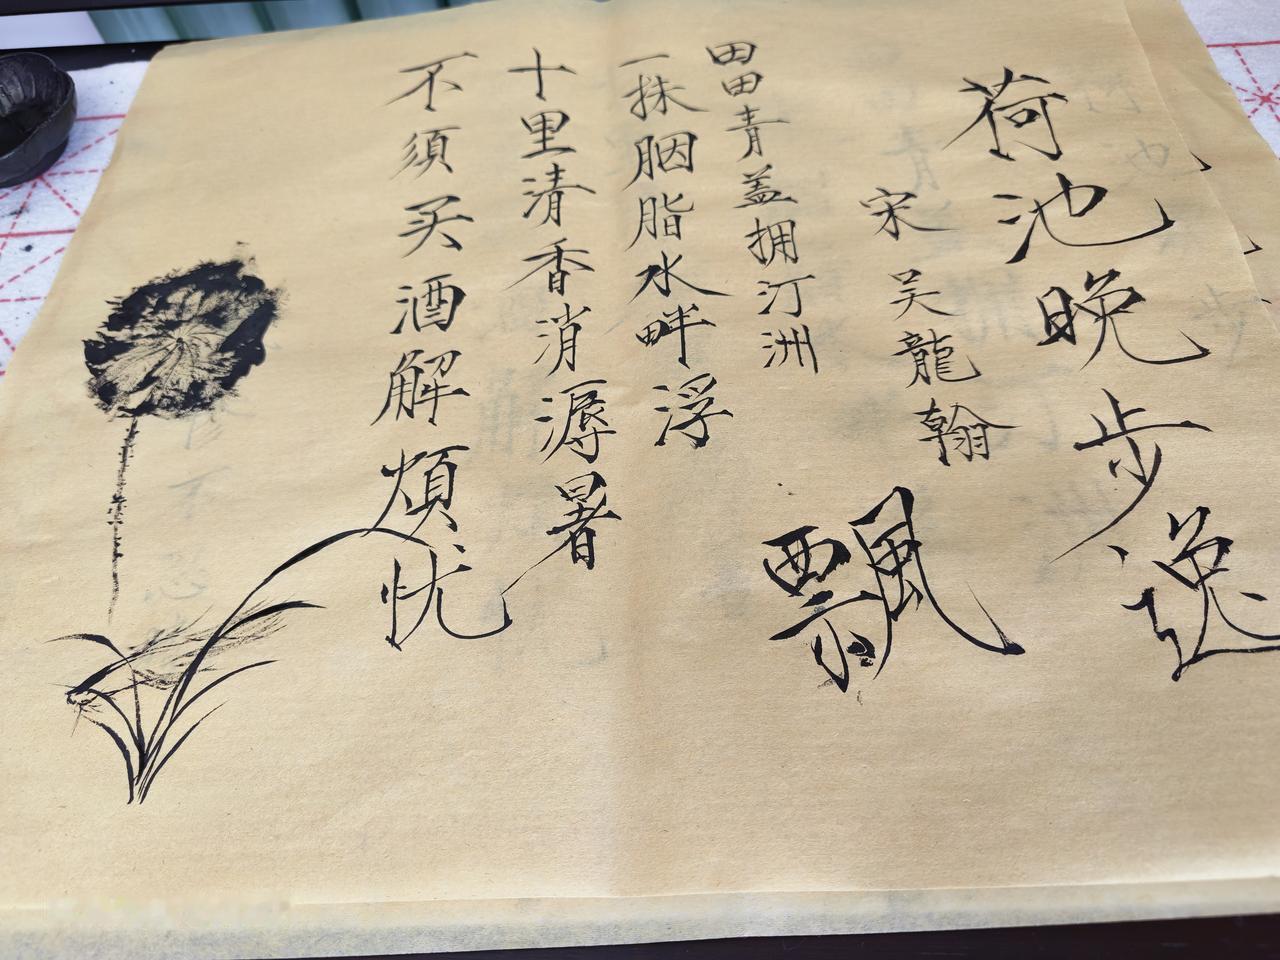 荷池晚步
宋吴龍翰
田田青盖拥汀洲
一抹胭脂水畔浮
十里清香消溽暑
不须买酒解煩忧
飘逸